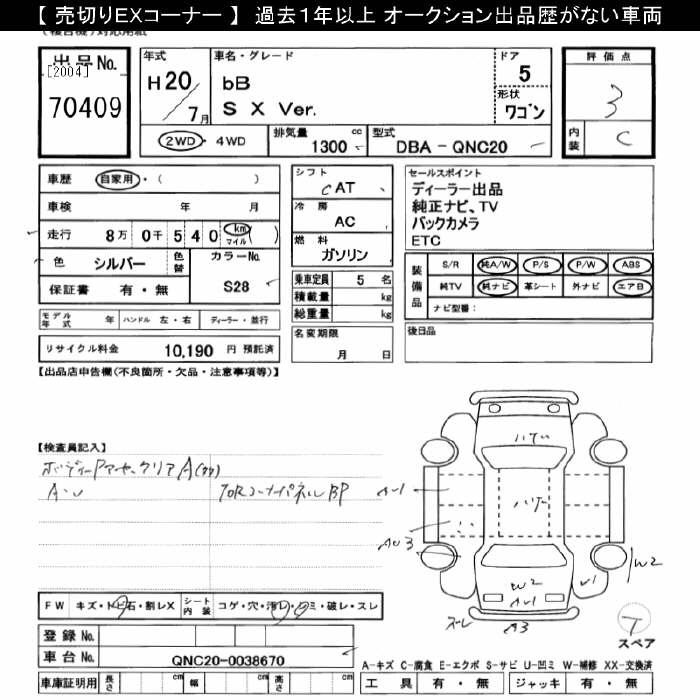 【 売切りEXコーナー 】 過去1年以上 オークション出品歴がない車両
出品No.
[2004]
70409
年式
H20/7月
車名・グレード
bB
S X Ver.
ドア
5
形状
ワゴン
評価点
3
内装
C
2WD・4WD
排気量
1300 cc
型式
DBA - QNC20
車歴 自家用・( )
車検 年 月
走行 8万 0千 5 4 0 ( km マイル )
色 シルバー 色替
カラーNo.
S28
保証書 有・無
シフト
AT
冷房
AC
燃料
ガソリン
乗車定員 5 名
積載量 kg
総重量 kg
名変期限
月 日
セールスポイント
ディーラー出品
純正ナビ、TV
バックカメラ
ETC
装備品
S/R 純A/W P/S P/W ABS
純TV 純ナビ 革シート 外ナビ エアB
ナビ型番:
後日品
モデル年式 年 ハンドル 左・右 ディーラー・並行
リサイクル料金 10,190 円 預託済
【出品店申告欄(不良箇所・欠品・注意事項等)】
【検査員記入】
FW キズ・トビ石・割レX
シート内装 コゲ・穴・汚レ・シミ・破レ・スレ
登録No.
車台No. QNC20-0038670
車庫証明用 長さ cm 幅 cm 高さ cm
ハゲ
ハゲ
AU3
W2
W2
A3
スペア
A-キズ C-腐食 E-エクボ S-サビ U-凹ミ W-補修 XX-交換済
工具 有・無 ジャッキ 有・無